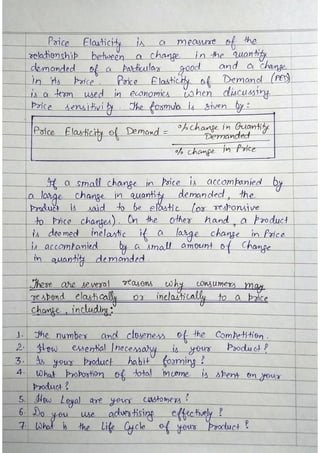 Price Elasticity is a measure of the
relationship between a change in the quantity
demanded of a particular good and a change
in its Price. Price Elasticity of Demand (PED)
is a term used in economics when discussing
Price sensitivity. The formula is given by:
Price Elasticity of Demand = % change in Quantity Demanded
% change in Price
If a small change in Price is accompanied by
a large change in quantity demanded, the
Product is said to be elastic (or responsive
to Price changes). On the other hand, a Product
is deemed inelastic if a large change in Price
is accompanied by a small amount of Change
in quantity demanded.
There are several reasons why consumers may
respond elastically or inelastically to a price
change, including:
1. The number and closeness of the Competition.
2. How essential/necessary is your Product?
3. Is your Product habit forming?
4. What Proportion of total income is spent on your
Product?
5. How Loyal are your customers?
6. Do you use advertising effectively?
7. What is the Life Cycle of your Product?